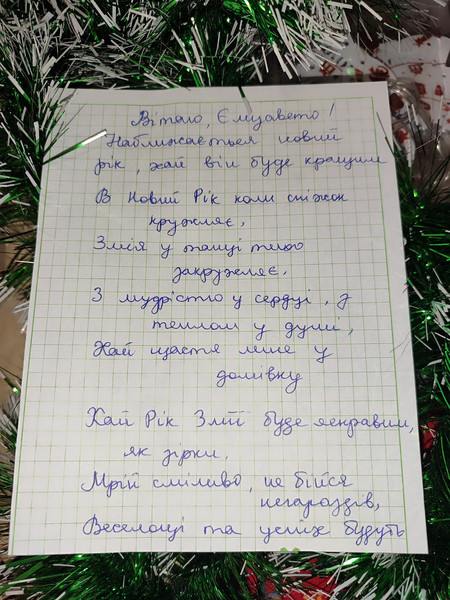 Вітаю, Єлизавето!
Наближається новий
рік, хай він буде кращим
В Новий Рік коли сніжок
кружляє,
Змія у танці тихо
закружляє.
З мудрістю у серці, з
теплом у душі,
Хай щастя лише у
домівку
Хай Рік Змії буде яскравим,
як зірки,
Мрій сміливо, не бійся
негараздів,
Веселощі та успіх будуть